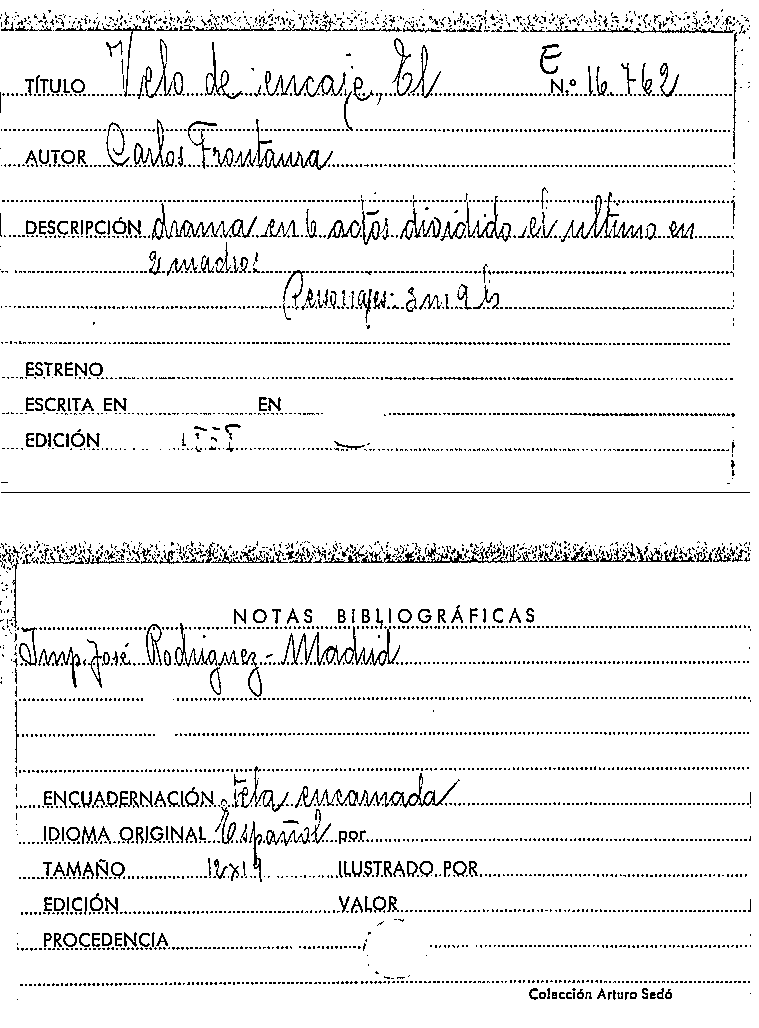 E
TÍTULO Velo de encaje, El N.º 16.762
AUTOR Carlos Frontaura
DESCRIPCIÓN drama en 6 actos dividido el ultimo en
2 cuadros
Personajes: 3 m 9 h
ESTRENO
ESCRITA EN EN
EDICIÓN
NOTAS BIBLIOGRÁFICAS
Imp. José Rodriguez - Madrid
ENCUADERNACIÓN Tela encarnada
IDIOMA ORIGINAL Español por
TAMAÑO 12x19 ILUSTRADO POR
EDICIÓN VALOR
PROCEDENCIA
Colección Arturo Sedó